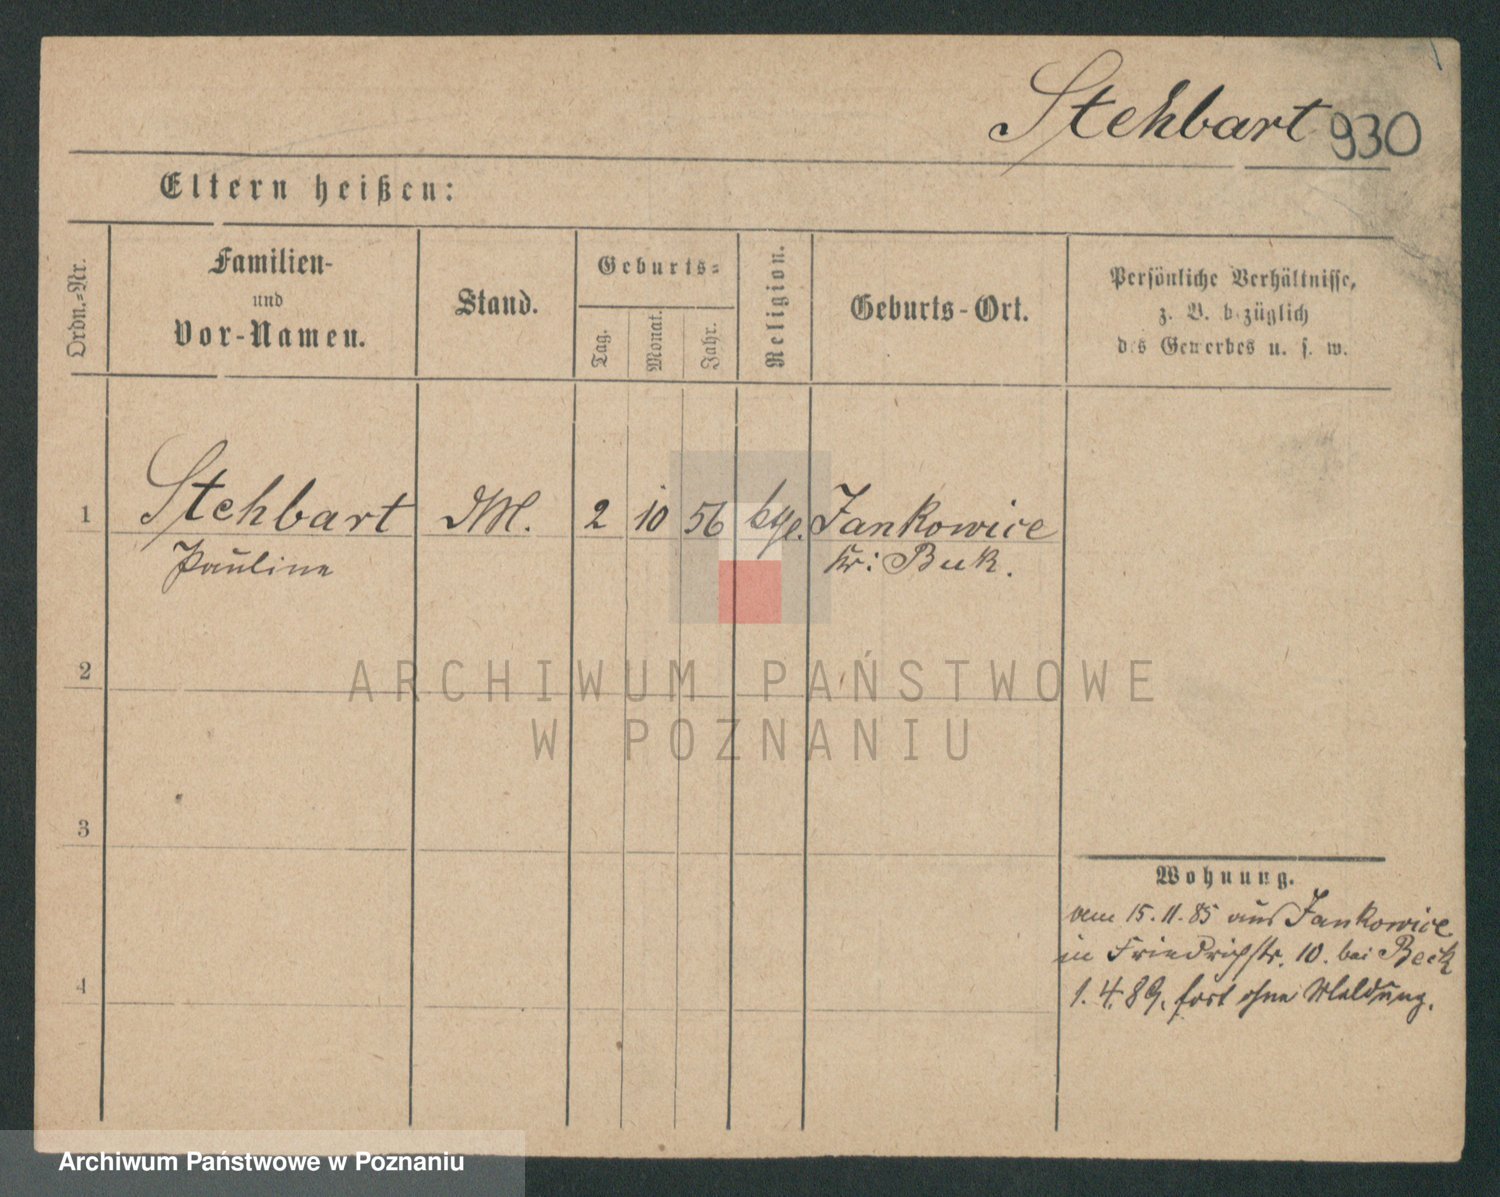 Stehbart 930
Eltern heißen:
Ordn.=Nr.
Familien-
und
Vor-Namen.
Stand.
Geburts=
Tag.
Monat.
Jahr.
Religion.
Geburts-Ort.
Persönliche Verhältnisse,
z. B. bezüglich
des Gewerbes u. s. w.
1 Stehbart DM. 2 10 56 kge. Jankowice
Pauline Kr: Buk.
2
3
4
Wohnung.
vom 15.11.85 aus Jankowice
in Friedrichstr. 10. bei Beck
1.4.89. fort ohne Meldung.
ARCHIWUM PAŃSTWOWE
W POZNANIU
Archiwum Państwowe w Poznaniu